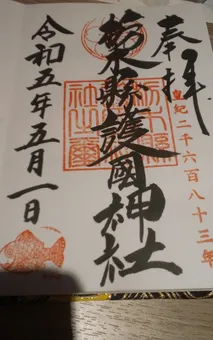 奉拝
皇紀二千六百八十三年
栃木縣護國神社
令和五年五月一日